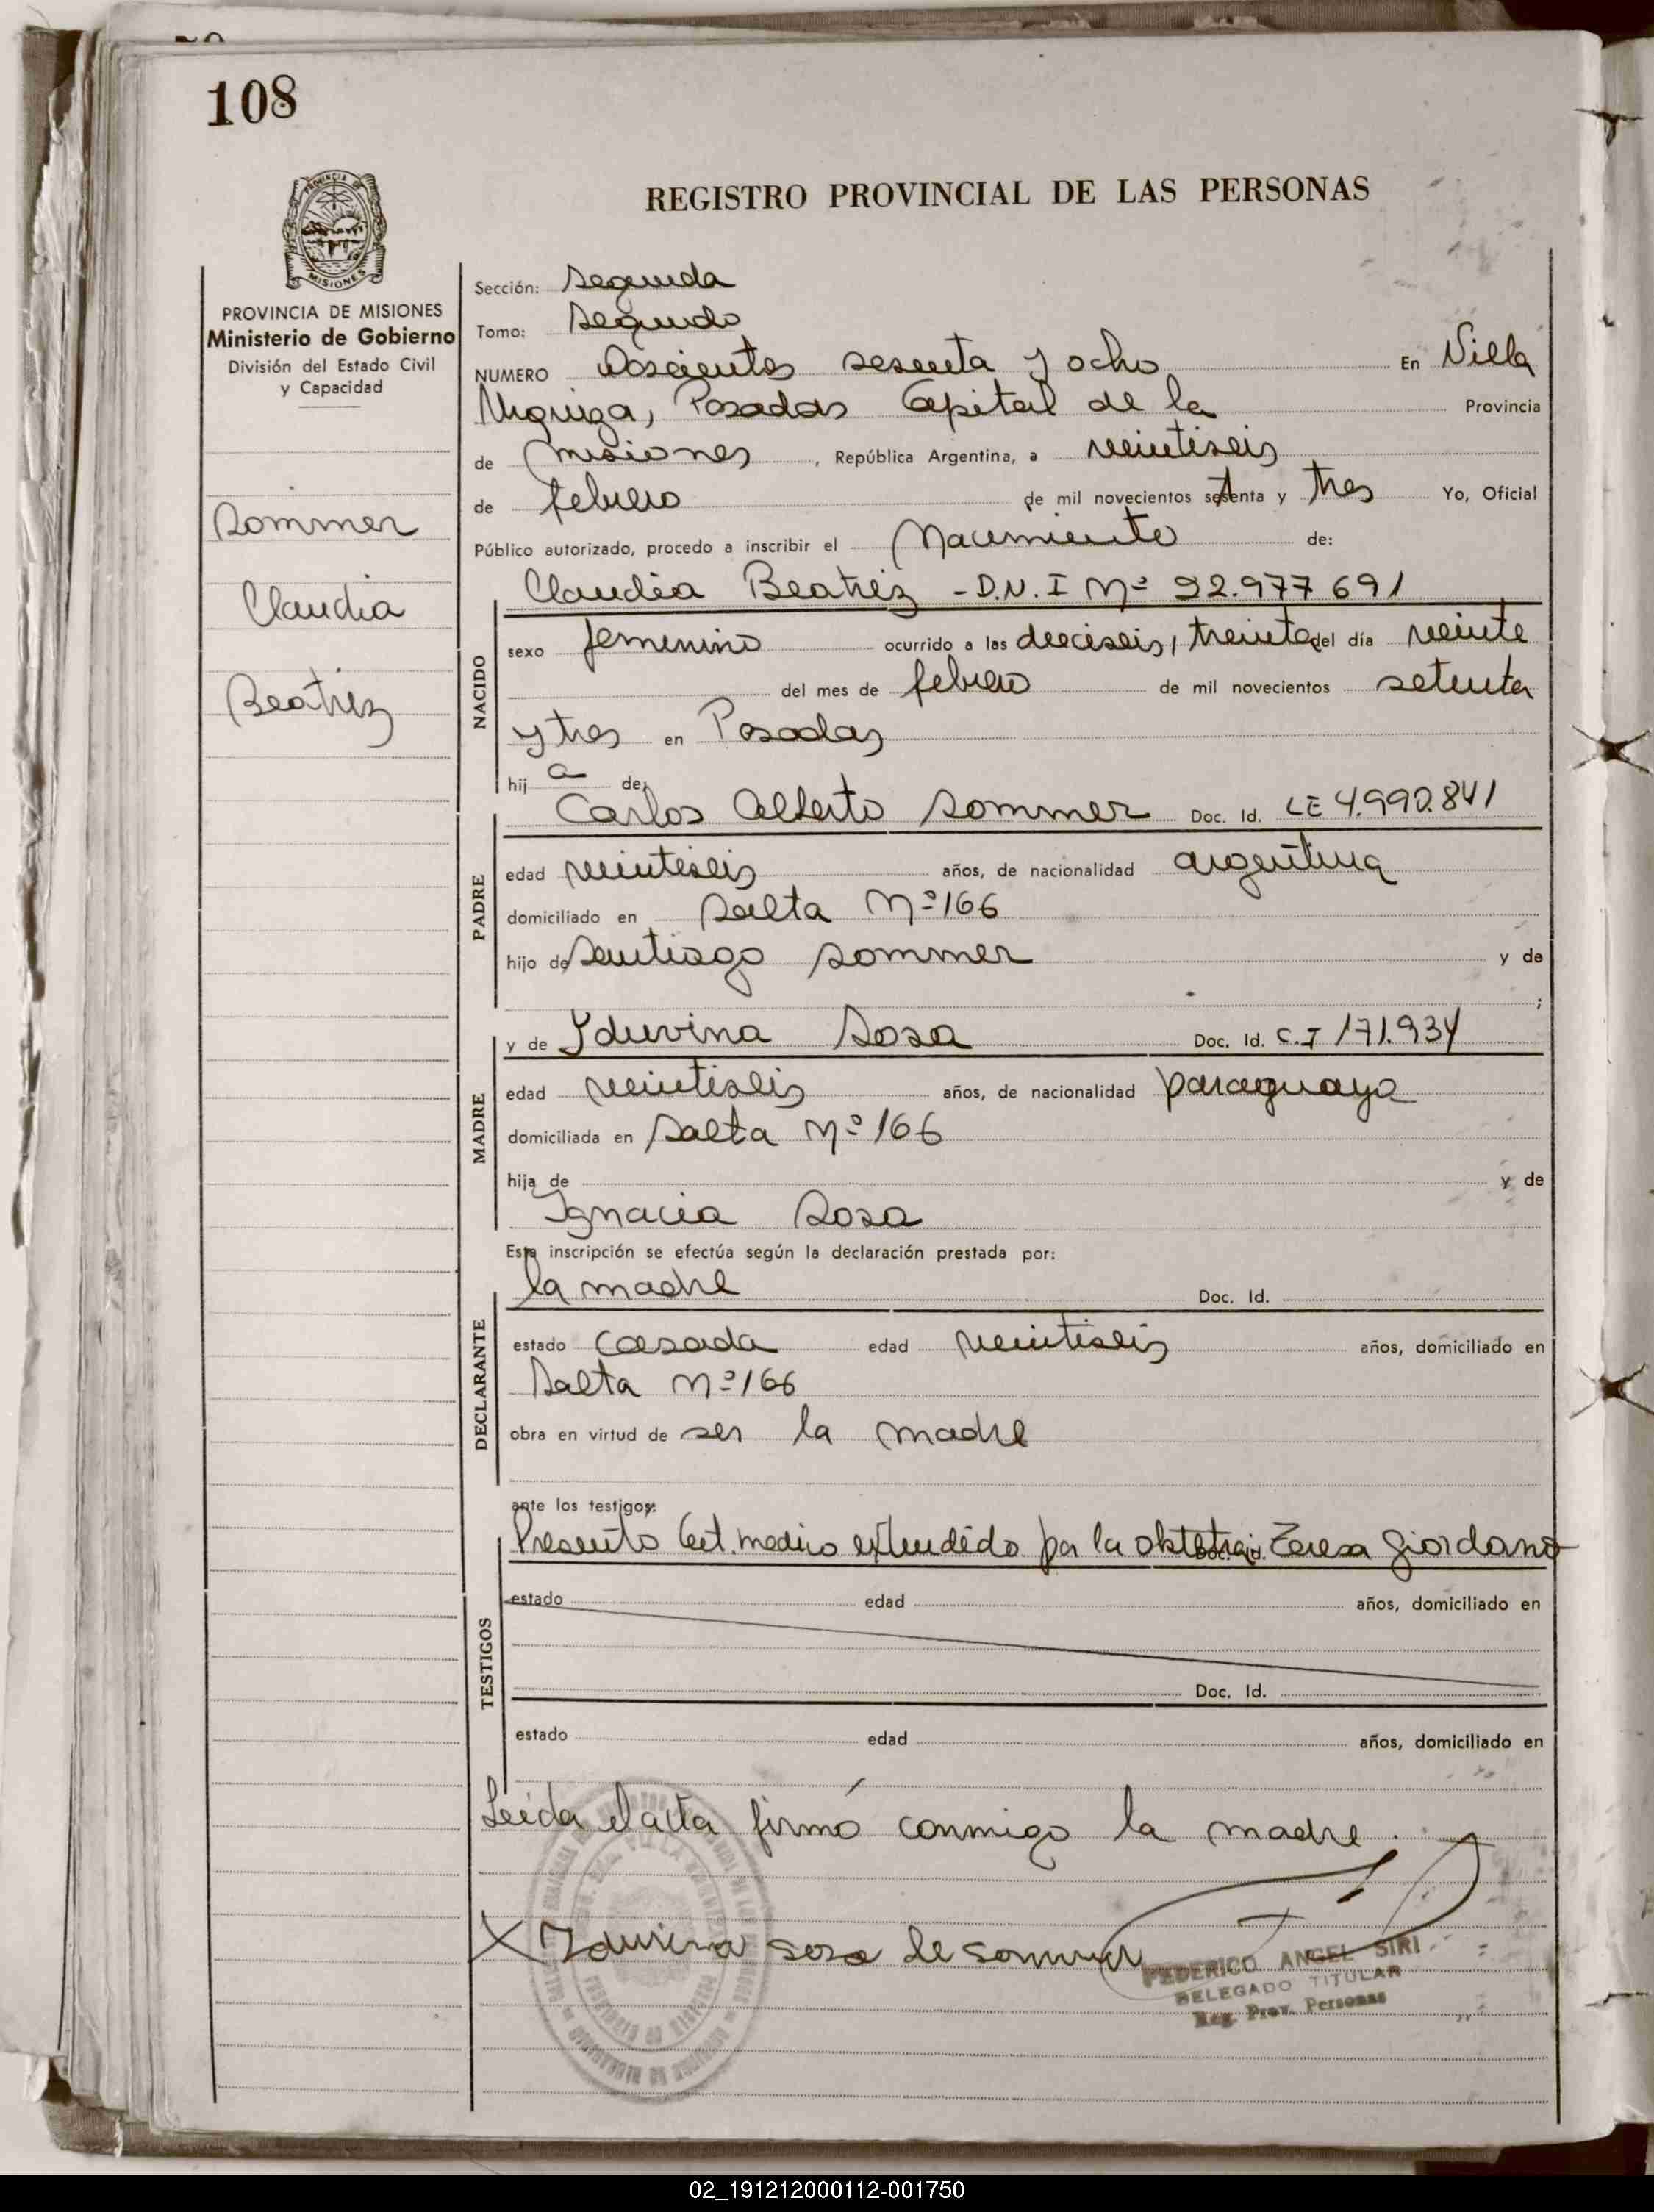 108
PROVINCIA DE
MISIONES
REGISTRO PROVINCIAL DE LAS PERSONAS
PROVINCIA DE MISIONES
Ministerio de Gobierno
División del Estado Civil
y Capacidad
Sommer
Claudia
Beatriz
Sección: Segunda
Tomo: Segundo
NUMERO Doscientos sesenta y ocho En Villa
Urquiza, Posadas Capital de la Provincia
de misiones, República Argentina, a veintiseis
de febrero de mil novecientos setenta y tres Yo, Oficial
Público autorizado, procedo a inscribir el Nacimiento de:
Claudia Beatriz - D.N.I Nº 92.977691
NACIDO
sexo femenino ocurrido a las dieciseis, treinta del día veinte
del mes de febrero de mil novecientos setenta
y tres en Posadas
hij a de
PADRE
Carlos Alberto Sommer Doc. Id. LE 4.990.841
edad veintiseis años, de nacionalidad argentina
domiciliado en Salta Nº 166
hijo de Santiago Sommer y de
;
MADRE
y de Yduvina Sosa Doc. Id. C.I 171.934
edad veintiseis años, de nacionalidad paraguaya
domiciliada en Salta Nº 166
hija de y de
Ignacia Sosa
Esta inscripción se efectúa según la declaración prestada por:
DECLARANTE
la madre Doc. Id.
estado casada edad veintiseis años, domiciliado en
Salta Nº 166
obra en virtud de ser la madre
ante los testigos:
TESTIGOS
Presento Cert. medico extendido por la obtetra Teresa Giordano
estado edad años, domiciliado en
Doc. Id.
estado edad años, domiciliado en
Leída el acta firmó conmigo la madre.
X Yduvina sosa de sommer
FEDERICO ANGEL SIRI
DELEGADO TITULAR
Reg. Prov. Personas
02_191212000112-001750